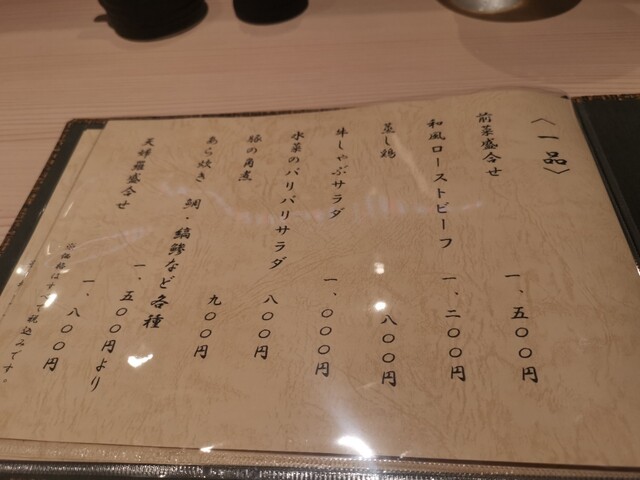 〈一品〉
前菜盛合せ 一、五〇〇円
和風ローストビーフ 一、二〇〇円
蒸し鶏 八〇〇円
牛しゃぶサラダ 一、〇〇〇円
水菜のパリパリサラダ 八〇〇円
豚の角煮 九〇〇円
あら炊き 鯛・縞鯵など各種 一、五〇〇円より
天婦羅盛合せ 一、八〇〇円
※価格はすべて税込みです。